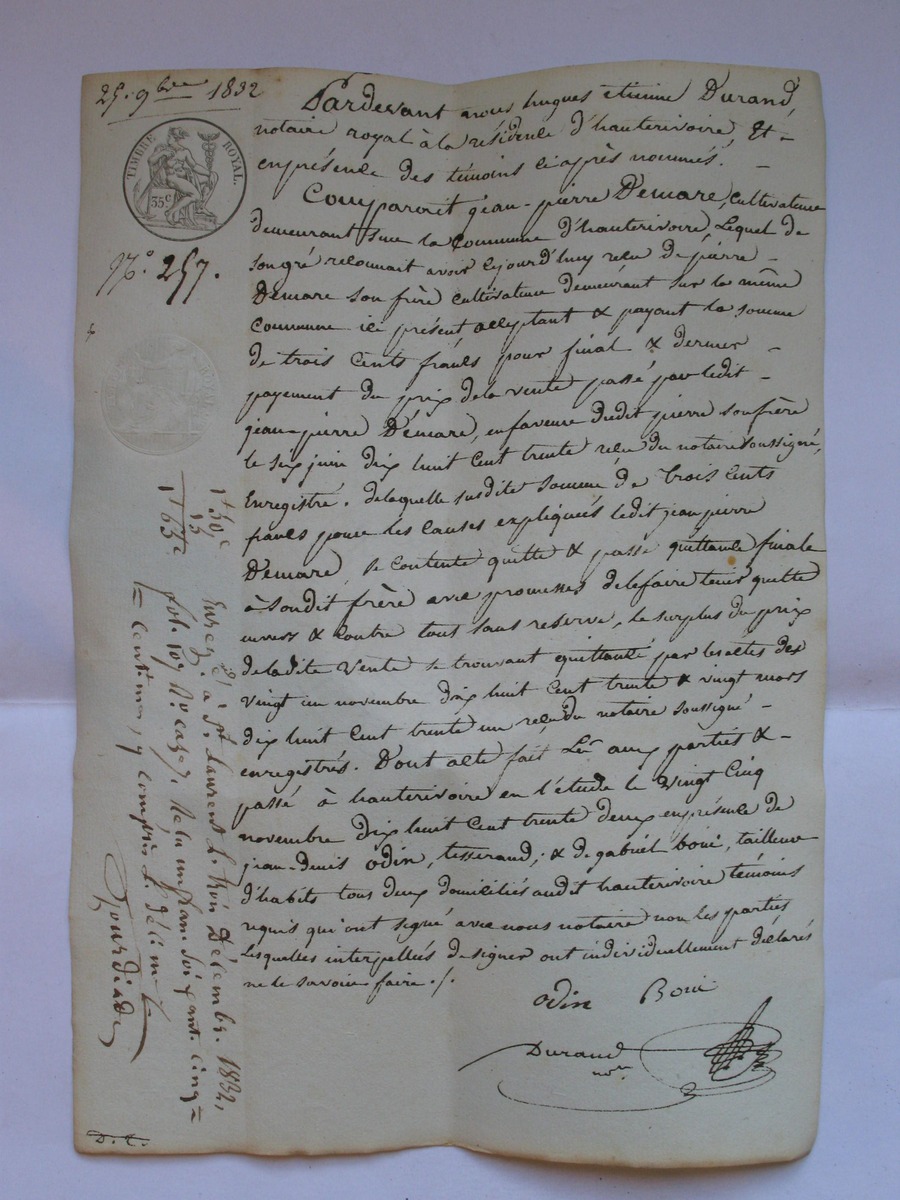 25. 9bre 1832
TIMBRE ROYAL.
35c
No. 257.
Pardevant nous hugues étienne Durand,
notaire royal à la résidence d'hauterivoire, Et
enprésence des témoins ci après nommés.
Comparoit jean-pierre Demare, Cultivateur
demeurant sur la Commune d'hauterivoire, Lequel de
son gré reconnait avoir cejourd'huy reçu de pierre
Demare son frère cultivateur demeurant sur la même
Commune ici présent acceptant & payant la somme
de trois Cents francs pour final & dernier
payement du prix dela vente passé par ledit
jean-pierre Démare, enfaveur dudit pierre son frère
le six juin dix huit Cent trente reçu du notaire soussigné,
Enregistré. delaquelle susdite somme de trois Cents
francs pour les Causes expliquées ledit jean pierre
Demare, se contente quitte & passe quittance finale
à sondit frère avec promesses delefaire tenir quitte
envers & contre tous sans reserve, le surplus du prix
deladite Vente se trouvant quittancé par les actes des
vingt un novembre dix huit Cent trente & vingt mars
dix huit Cent trente un reçu du notaire soussigné
enregistrés. Dont acte fait Lu aux parties &
passé à hauterivoire en l'étude le Vingt Cinq
novembre Dix huit Cent trente deux enprésence de
jean-Denis Odin, tisserand, & de gabriel boui, tailleur
d'habits tous deux domiciliés audit hauterivoire témoins
requis qui ont signé avec nous notaire non les parties
Lesquelles interpellées de signer ont individuellement déclarés
ne le savoir faire ./.
Odin Boui
Durand
nore
1f 50c
15
1f 65c
Enreg. à St Laurent L. trois Décembre 1832,
fol. 107 Ro case 7, Reçu un franc soixante cinq
centimes, y compris L. décime
D. C.